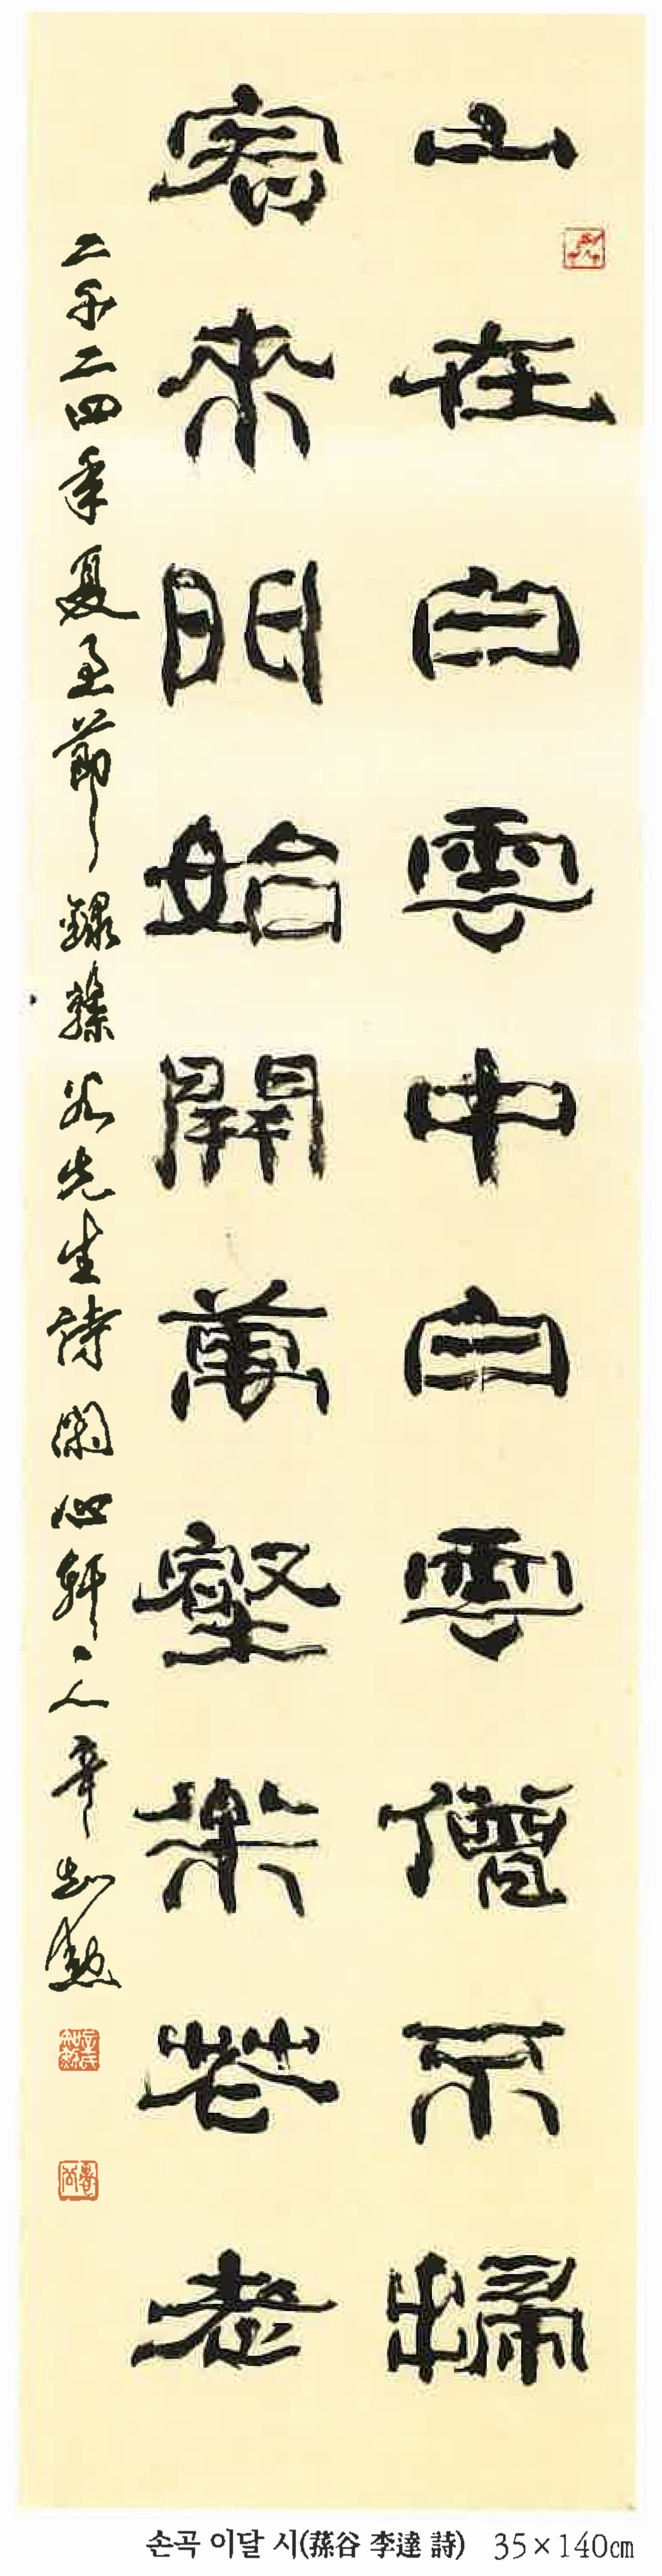 山在白雲中白雲僧不掃
客來門始開萬壑松花老
二千二四年夏至節錄蓀谷先生詩閑心軒主人
손곡 이달 시(蓀谷 李達 詩) 35×140㎝